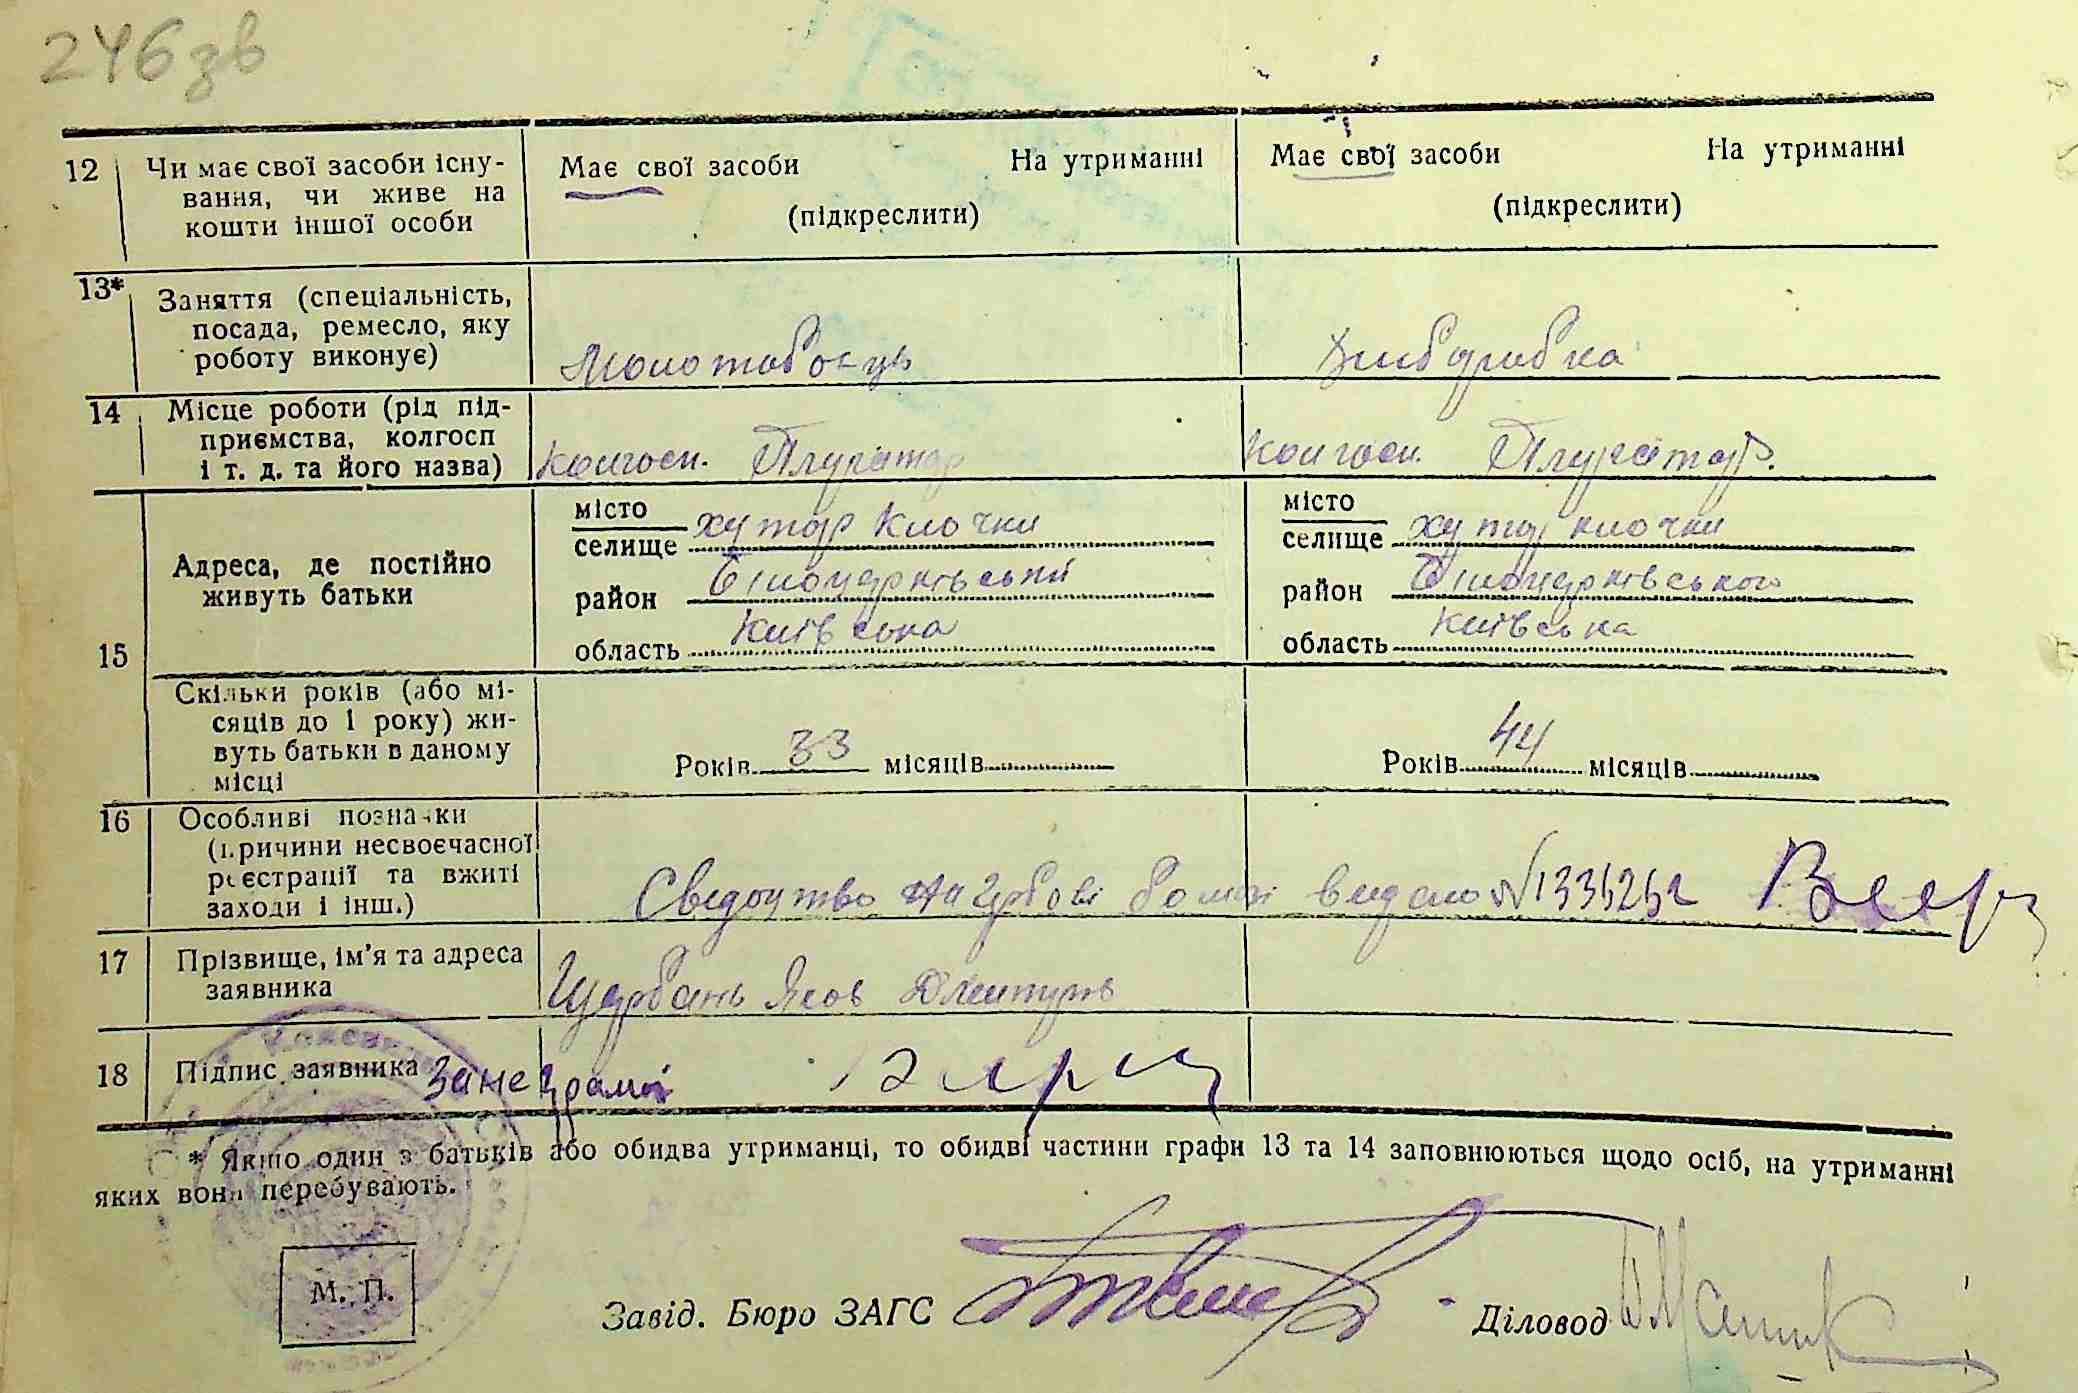 246зв
12 Чи має свої засоби існу- Має свої засоби На утриманні Має свої засоби На утриманні
вання, чи живе на
кошти іншої особи (підкреслити) (підкреслити)
13* Заняття (спеціальність,
посада, ремесло, яку
роботу виконує) Молотобоєць
14 Місце роботи (рід під-
приємства, колгосп
і т. д. та його назва) колгосп. колгосп.
місто місто
селище хутор Клочки селище хутор клочки
Адреса, де постійно
живуть батьки район Білоцерківський район Білоцерківського
15 область Київська область Київська
Скільки років (або мі-
сяців до 1 року) жи-
вуть батьки в даному Років 33 місяців Років 44 місяців
місці
16 Особливі позначки
(причини несвоєчасної
реєстрації та вжиті
заходи і інш.) Сведоцтво на видано №
17 Прізвище, ім'я та адреса
заявника Щербань Яков
18 Підпис заявника За неграмот
* Якшо один з батьків або обидва утриманці, то обидві частини графи 13 та 14 заповнюються щодо осіб, на утриманні
яких вони перебувають.
М. П.
Завід. Бюро ЗАГС Діловод